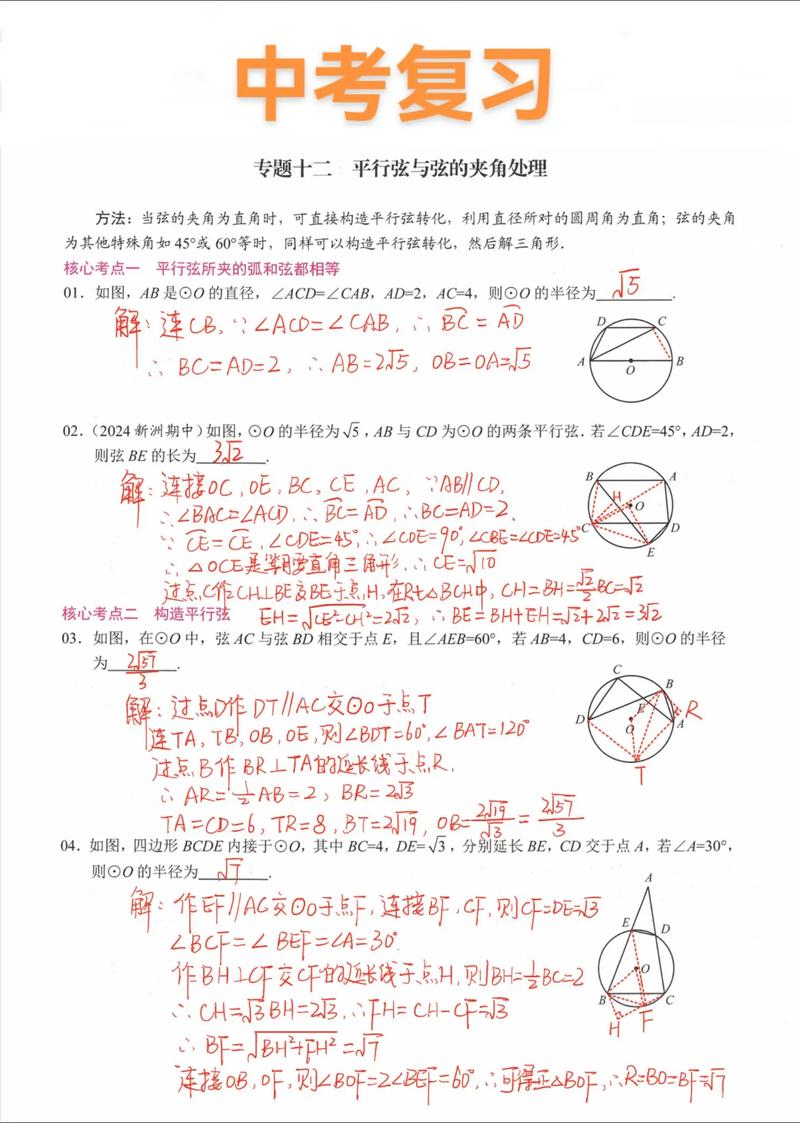 中考复习
专题十二 平行弦与弦的夹角处理
方法：当弦的夹角为直角时，可直接构造平行弦转化，利用直径所对的圆周角为直角；弦的夹角
为其他特殊角如 45°或 60°等时，同样可以构造平行弦转化，然后解三角形.
核心考点一 平行弦所夹的弧和弦都相等
01. 如图，AB 是⊙O 的直径，∠ACD=∠CAB，AD=2，AC=4，则⊙O 的半径为 √5 .
解：连CB，∵∠ACD=∠CAB，∴BC=AD
∴BC=AD=2，∴AB=2√5，OB=OA=√5
D C
A O B
02.（2024 新洲期中）如图，⊙O 的半径为√5，AB 与 CD 为⊙O 的两条平行弦. 若∠CDE=45°，AD=2，
则弦 BE 的长为 3√2 .
解：连接OC，OE，BC，CE，AC，∵AB∥CD，
∴∠BAC=∠ACD，∴BC=AD，∴BC=AD=2，
∵CE=CE，∠CDE=45°，∴∠COE=90°，∠CBE=∠CDE=45°
∴△OCE是等腰直角三角形，∴CE=√10
过点C作CH⊥BE交BE于点H，在Rt△BCH中，CH=BH=√2/2BC=√2
B A
H O
C D
E
核心考点二 构造平行弦
EH=√CE²-CH²=2√2，∴BE=BH+EH=√2+2√2=3√2
03. 如图，在⊙O 中，弦 AC 与弦 BD 相交于点 E，且∠AEB=60°，若 AB=4，CD=6，则⊙O 的半径
为 2√57/3 .
解：过点D作DT∥AC交⊙O于点T
连TA，TB，OB，OE，则∠BDT=60°，∠BAT=120°
过点B作BR⊥TA的延长线于点R，
∴AR=1/2AB=2，BR=2√3
TA=CD=6，TR=8，BT=2√19，OB=2√19/√3=2√57/3
C B
E R
D O A
T
04. 如图，四边形 BCDE 内接于⊙O，其中 BC=4，DE=√3，分别延长 BE，CD 交于点 A，若∠A=30°，
则⊙O 的半径为 √7 .
解：作EF∥AC交⊙O于点F，连接BF，CF，则CF=DE=√3
∠BCF=∠BEF=∠A=30°.
作BH⊥CF交CF的延长线于点H，则BH=1/2BC=2
∴CH=√3BH=2√3，∴FH=CH-CF=√3
∴BF=√BH²+FH²=√7
连接OB，OF，则∠BOF=2∠BEF=60°，∴可得正△BOF，∴R=BO=BF=√7
A
E D
O
B C
H F